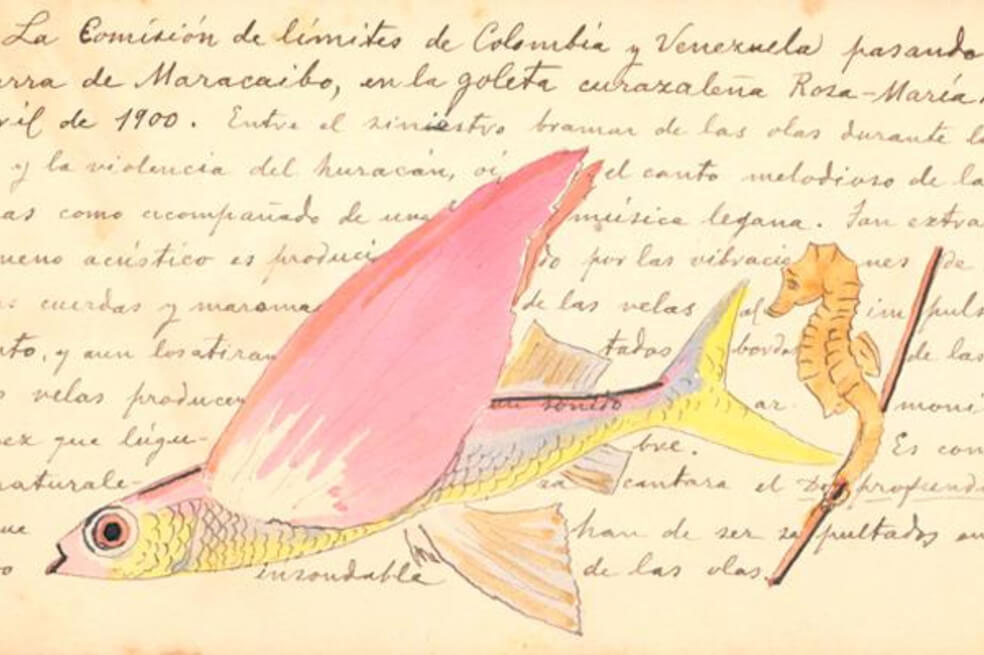 La Comisión de límites de Colombia y Venezuela pasando
erra de Maracaibo, en la goleta curazaleña Rosa-María
ril de 1900. Entre el siniestro bramar de las olas durante l
y la violencia del huracán, oí el canto melodioso de la
as como acompañado de una música legana. Tan extra
meno acústico es produci do por las vibracio nes de
s cuerdas y maroma de las velas al impuls
nto, y aun los atiran tados bordes de las
s velas producen un sonido ar moni
ez que lúgu- bre. Es com
naturale- za cantara el De profundi
ue han de ser sepultados en
o insondable de las olas